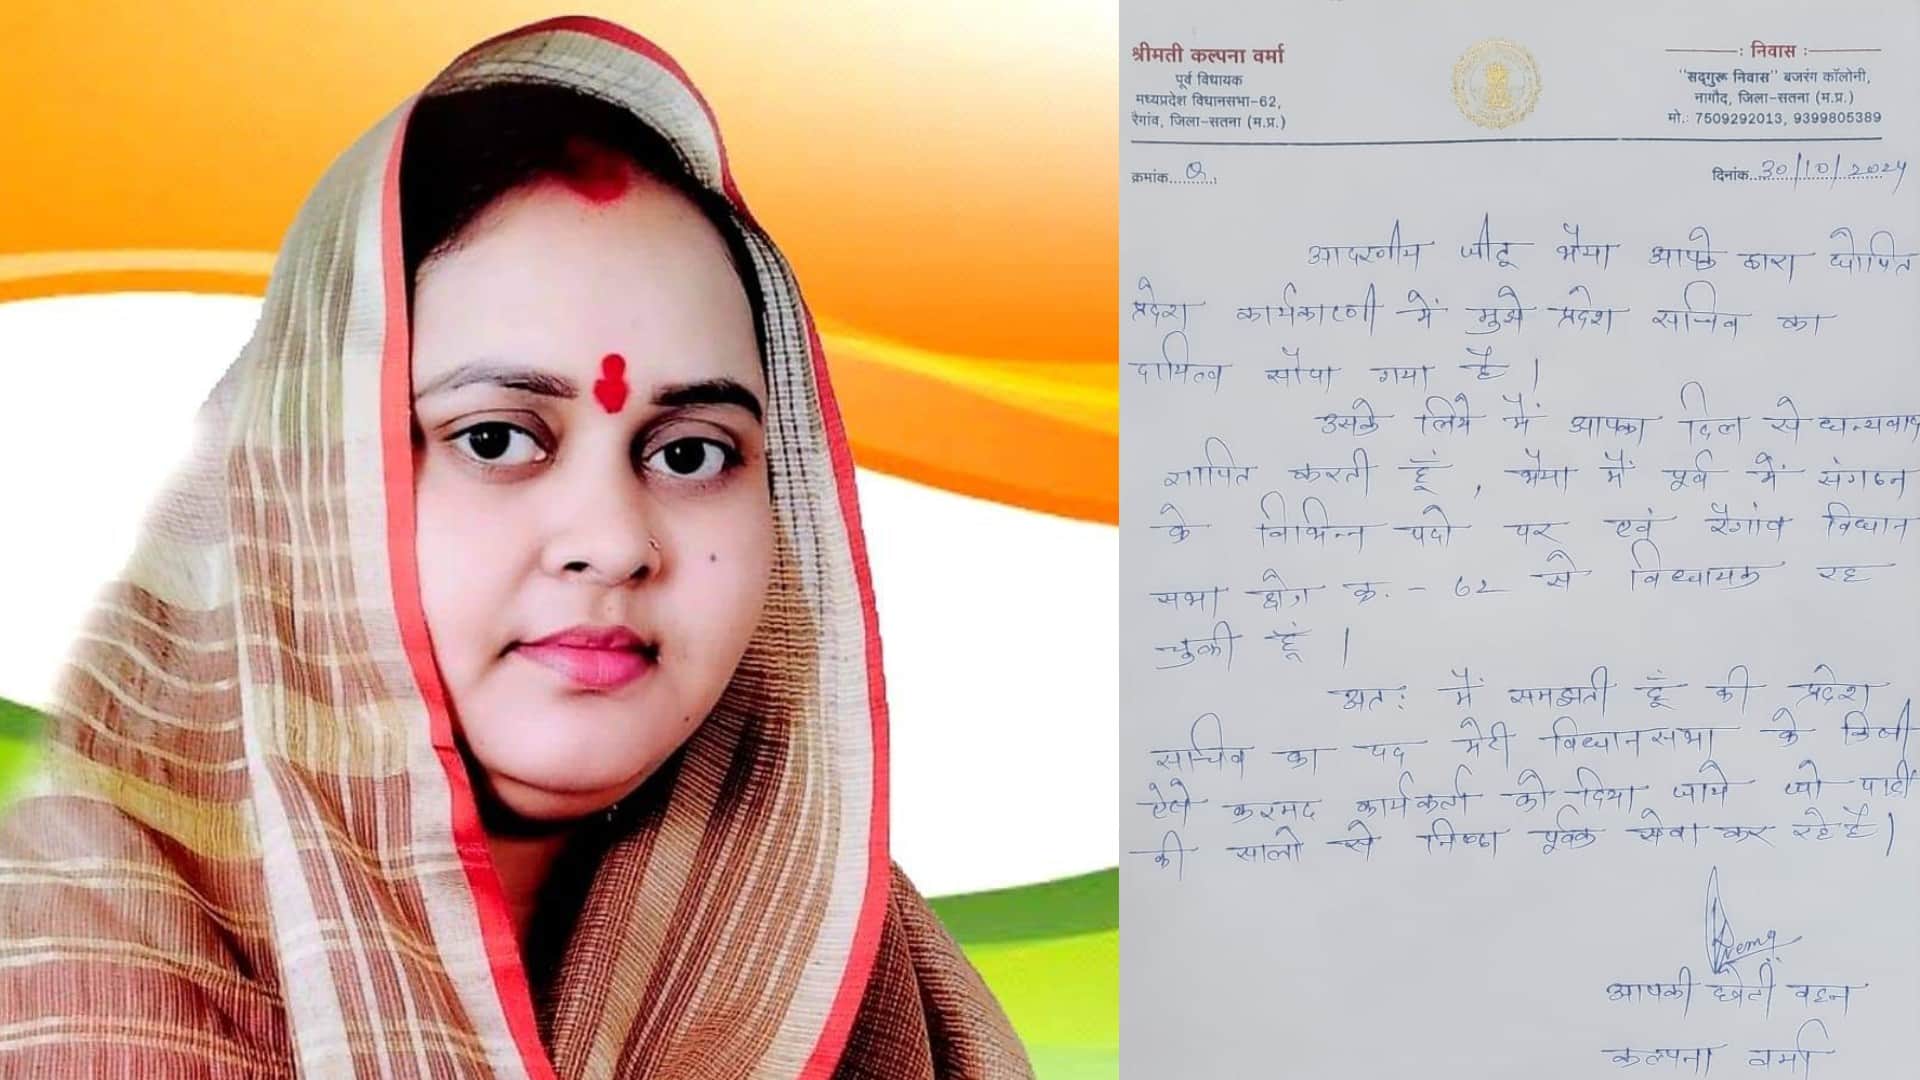 श्रीमती कल्पना वर्मा
पूर्व विधायक
मध्यप्रदेश विधानसभा-62,
रैगांव, जिला-सतना (म.प्र.)
: निवास :
"सद्‌गुरू निवास" बजरंग कॉलोनी,
नागौद, जिला-सतना (म.प्र.)
मो.: 7509292013, 9399805389
क्रमांक..........
दिनांक..30/10/2024
आदरणीय जीतू भैया आपके द्वारा घोषित
प्रदेश कार्यकारणी में मुझे प्रदेश सचिव का
दायित्व सौपा गया है |
उसके लिये मैं आपका दिल से धन्यवाद
ज्ञापित करती हूँ , भैया मैं पूर्व में संगठन
के विभिन्न पदो पर एवं रैगांव विधान
सभा क्षेत्र क्र. - 62 से विधायक रह
चुकी हूं |
अत: मैं समझती हूँ की प्रदेश
सचिव का पद मेरी विधानसभा के किसी
ऐसे करमठ कार्यकर्ता को दिया जाये जो पार्टी
की सालो से निष्ठा पूर्वक सेवा कर रहे है|
आपकी छोटी बहन
कल्पना वर्मा